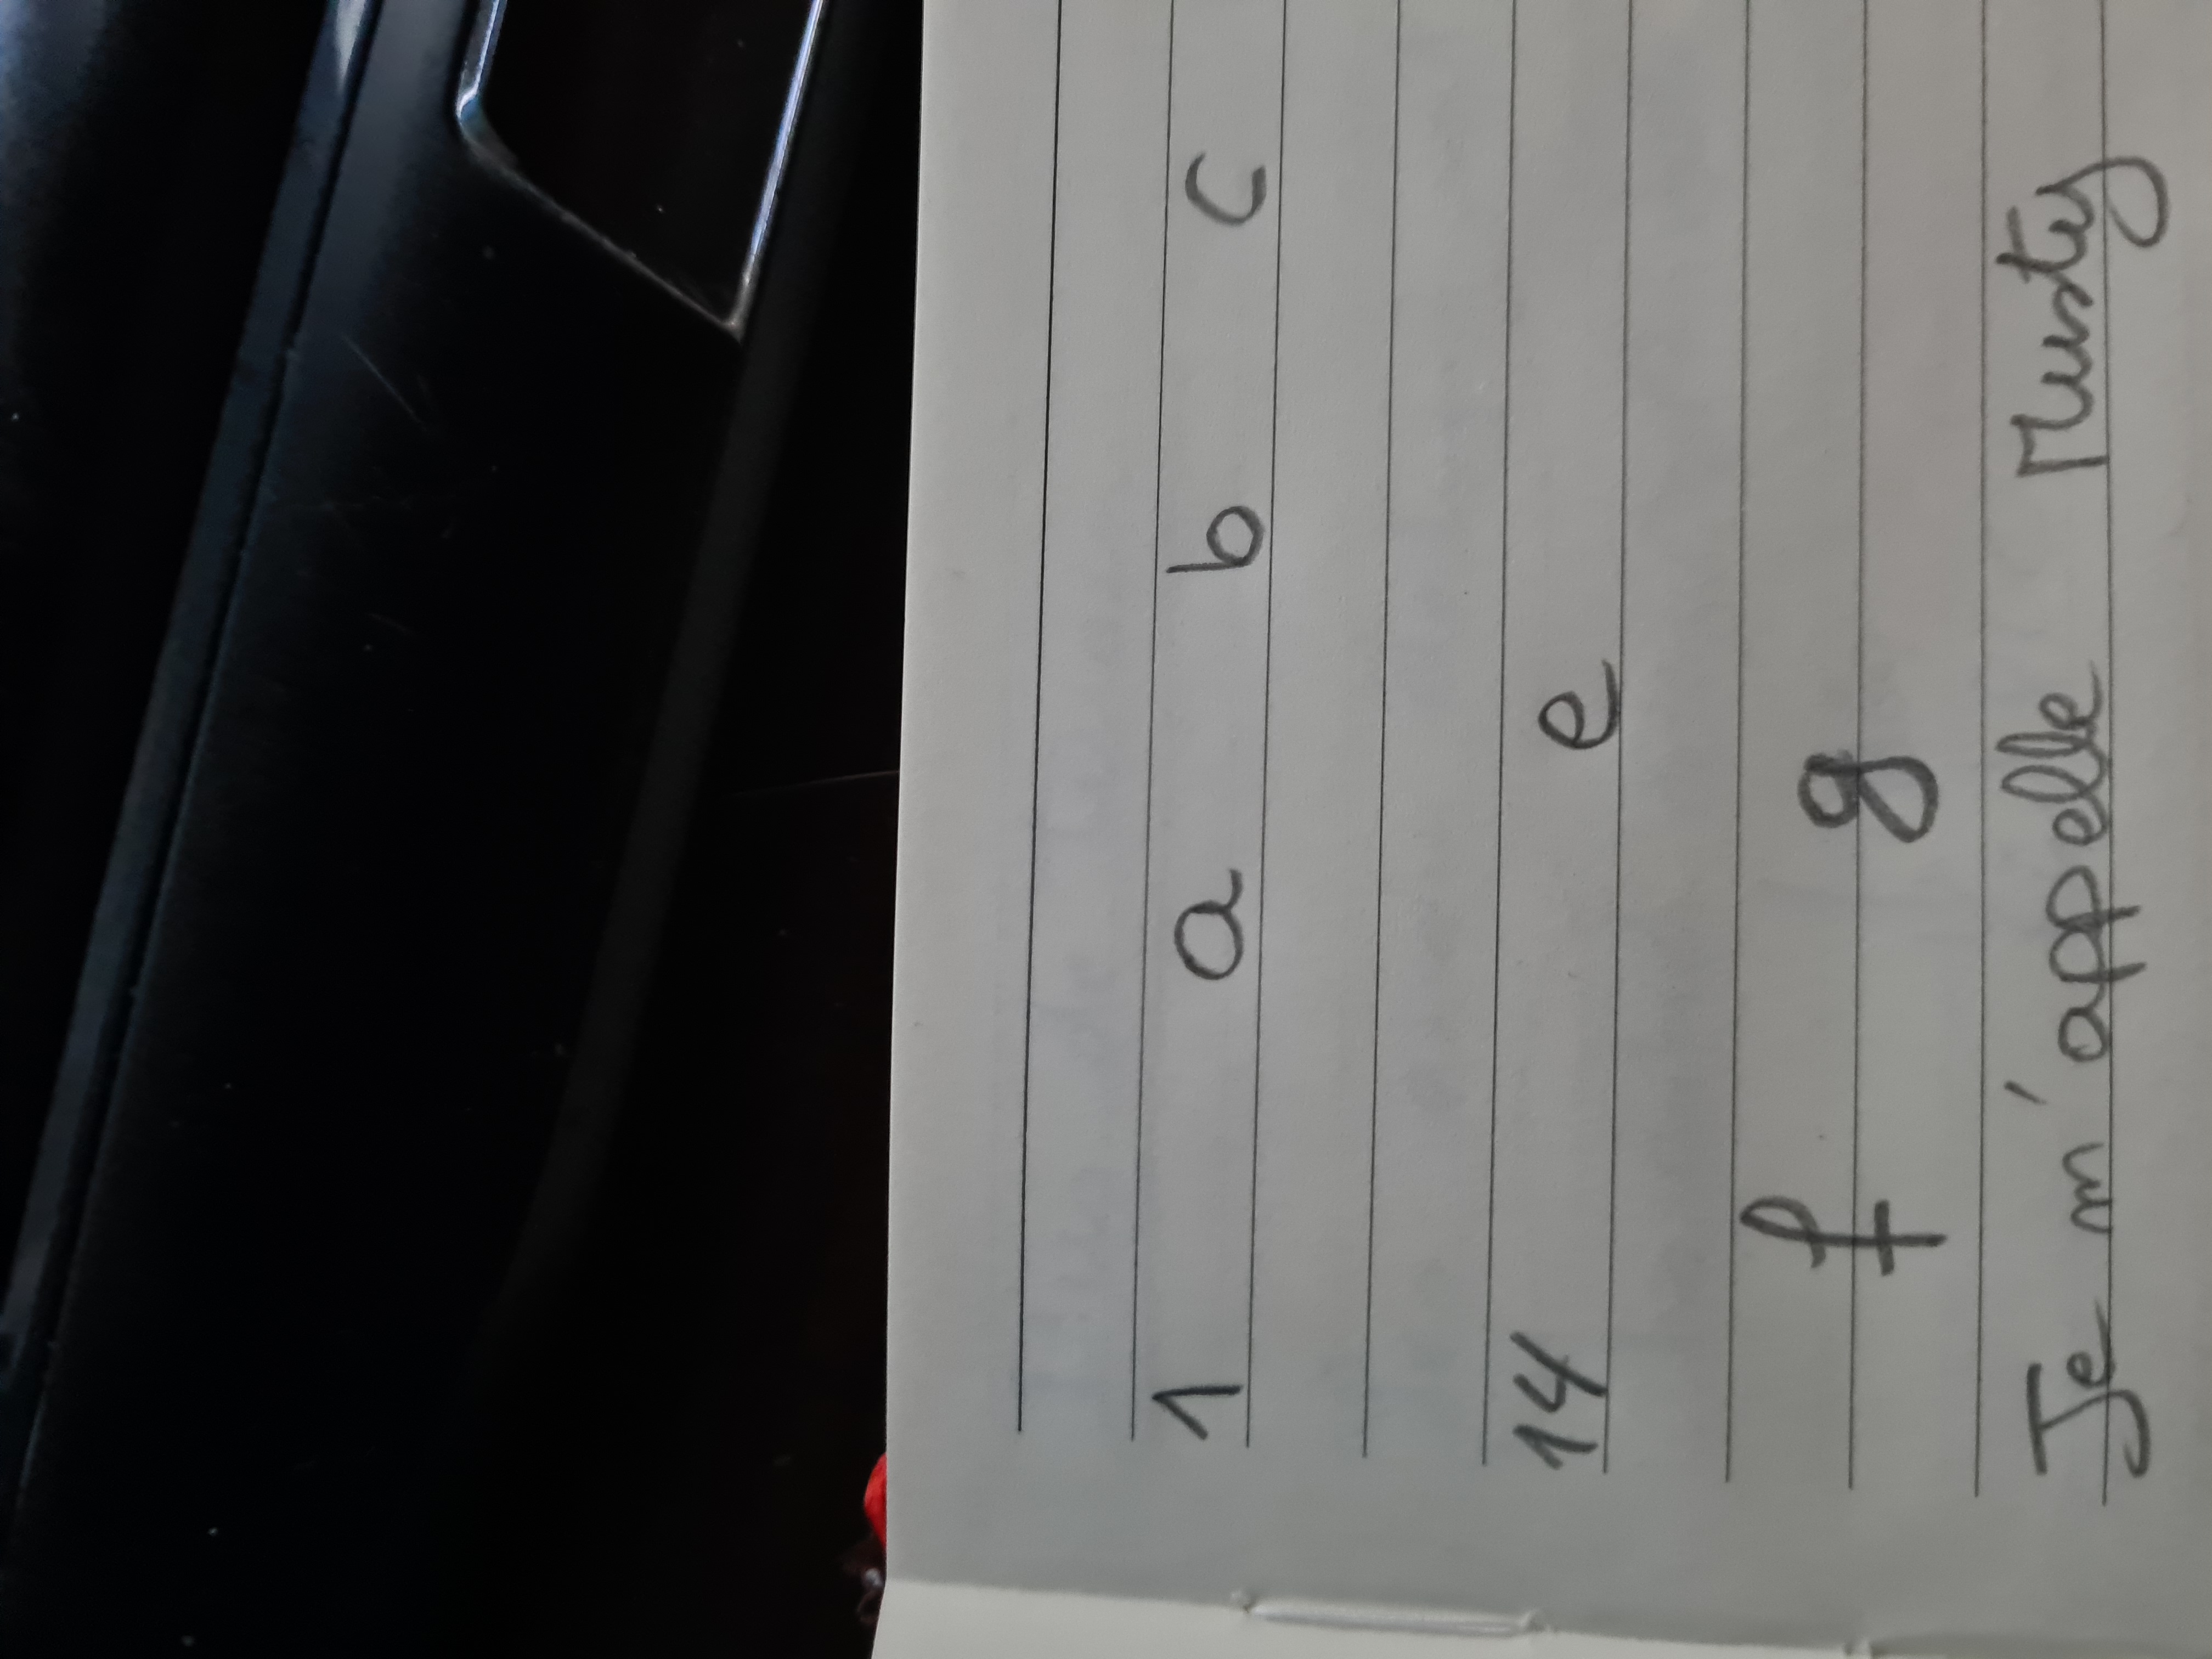 1 a b c
14 e
f g
Je m'appelle Musty